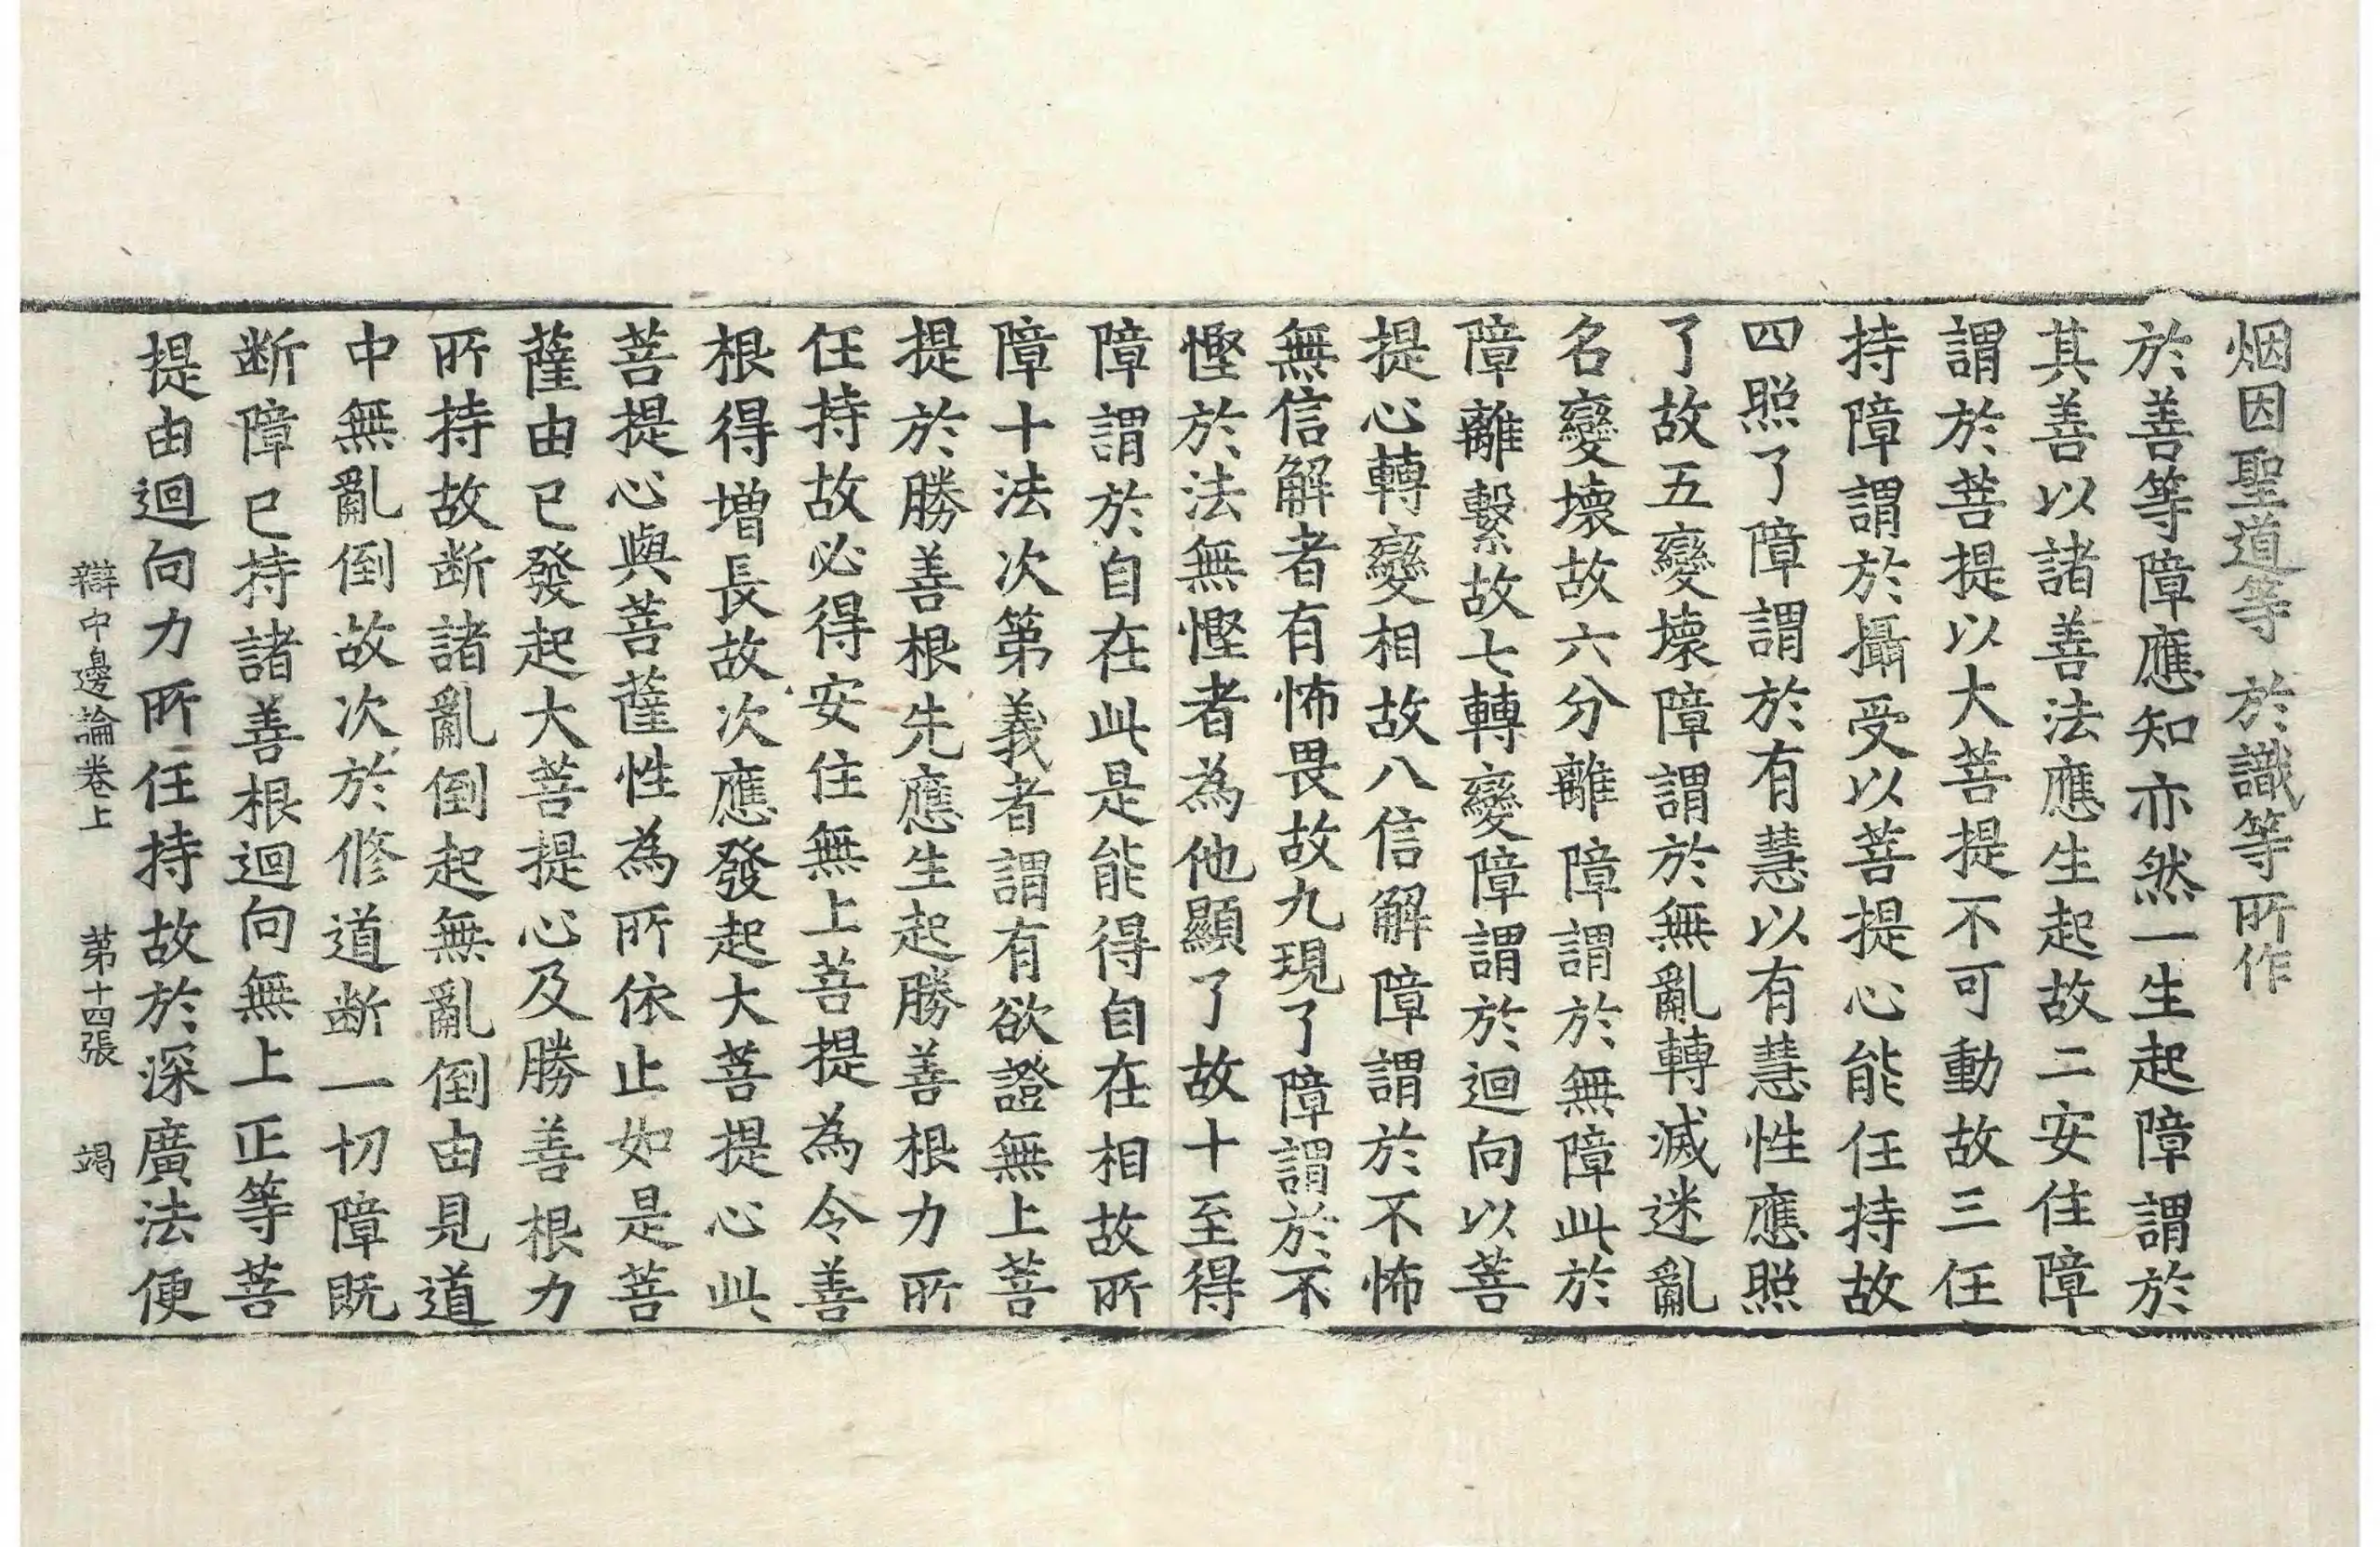 烟因聖道等　於識等所作
於善等障應知亦然一生起障謂於
其善以諸善法應生起故二安住障
謂於菩提以大菩提不可動故三任
持障謂於攝受以菩提心能任持故
四照了障謂於有慧以有慧性應照
了故五變壞障謂於無亂轉滅迷亂
名變壞故六分離障謂於無障此於
障離繫故七轉變障謂於迴向以菩
提心轉變相故八信解障謂於不怖
無信解者有怖畏故九現了障謂於不
慳於法無慳者為他顯了故十至得
障謂於自在此是能得自在相故所
障十法次第義者謂有欲證無上菩
提於勝善根先應生起勝善根力所
任持故必得安住無上菩提為令善
根得增長故次應發起大菩提心此
菩提心與菩薩性為所依止如是菩
薩由已發起大菩提心及勝善根力
所持故断諸亂倒起無亂倒由見道
中無亂倒故次於修道断一切障既
断障已持諸善根迴向無上正等菩
提由迴向力所任持故於深廣法便
辯中邊論卷上　第十四張　竭